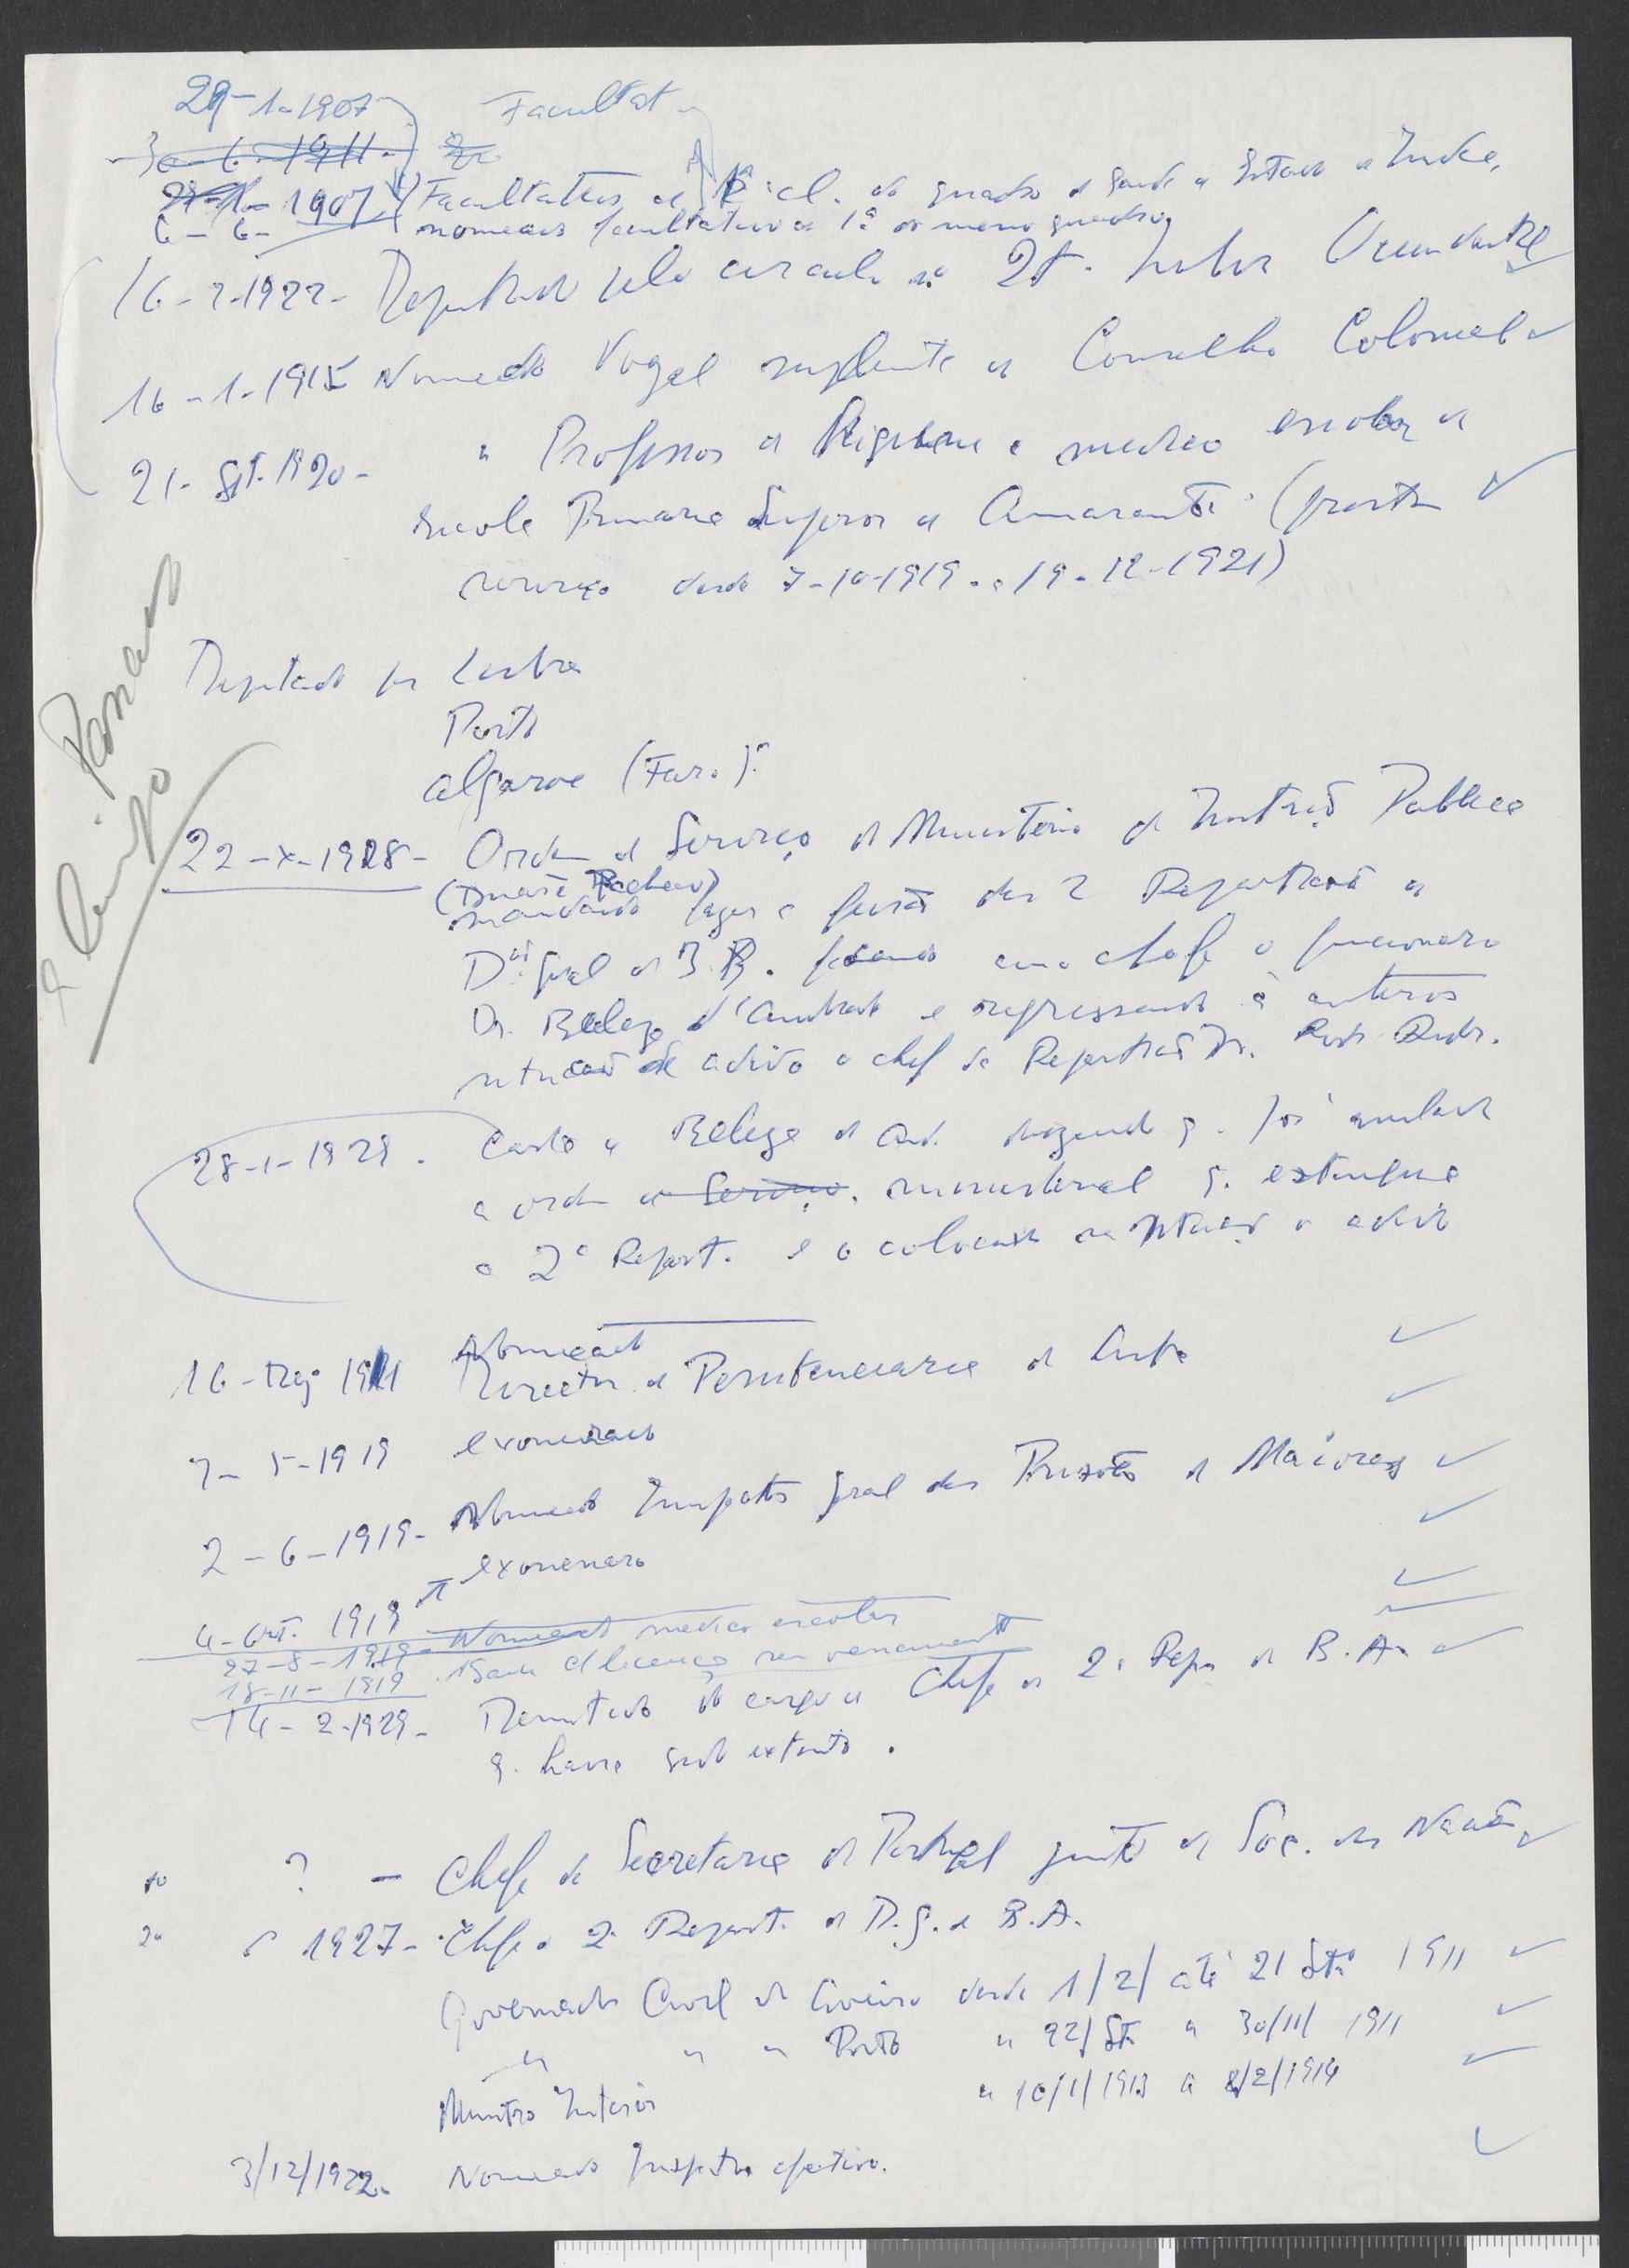 29-1-1907 Facultat
30-6-1911
1907 Facultativo de 2ª cl. do quadro de saude do Estado da India,
6-6- nomeado facultativo de 1ª do mesmo quadro
16-2-1922- Deputado pelo circulo nº 27. Lisboa Ocidental
16-1-1915 Nomeado Vogal suplente do Conselho Colonial
21-Set. 1920- " Professor de Higiene e medico escolar da
Escola Primaria Superior de Amarante (prestou
serviço desde 7-10-1919 a 19-12-1921)
Deputado por Lisboa
Porto
Algarve (Faro).
22-X-1928- Ordem de Serviço do Ministerio da Instrução Publica
(Duarte Pacheco)
mandando fazer a fusão das 2 Repartições da
Dir. Geral de B. ficando como chefe o funcionario
Dr. Beleza d'Andrade e regressando à anterior
situação de adido o chefe da Repartição Dr. Rodr. Rodr.
28-1-1929. Carta a Beleza de And. dizendo q. foi anulada
a ordem de Serviço. ministerial q. extinguiu
a 2ª Repart. e o colocara na situação de adido
16-Março 1911 Nomeado
Director da Penitenciaria de Lisboa
7-5-1919 exonerado
2-6-1919- Nomeado Inspector Geral das Prisões de Maiores
4-Out. 1919 exonerado
27-8-1919 Nomeado medico escolar
18-11-1919 licença sem vencimento
14-2-1929- Demitido do cargo de Chefe da 2ª Rep. de B.A.
q. havia sido extinto.
? - Chefe da Secretaria de Portugal junto da Soc. das Nações
1927- Chefe da 2ª Repart. da D.G. de B.A.
Governador Civil de Aveiro desde 1/2/ até 21 Setº 1911
" " " Porto " 22/Set. a 30/11/1911
Ministro Interior " 10/1/1913 a 8/2/1914
3/12/1922. Nomeado Inspector efectivo.